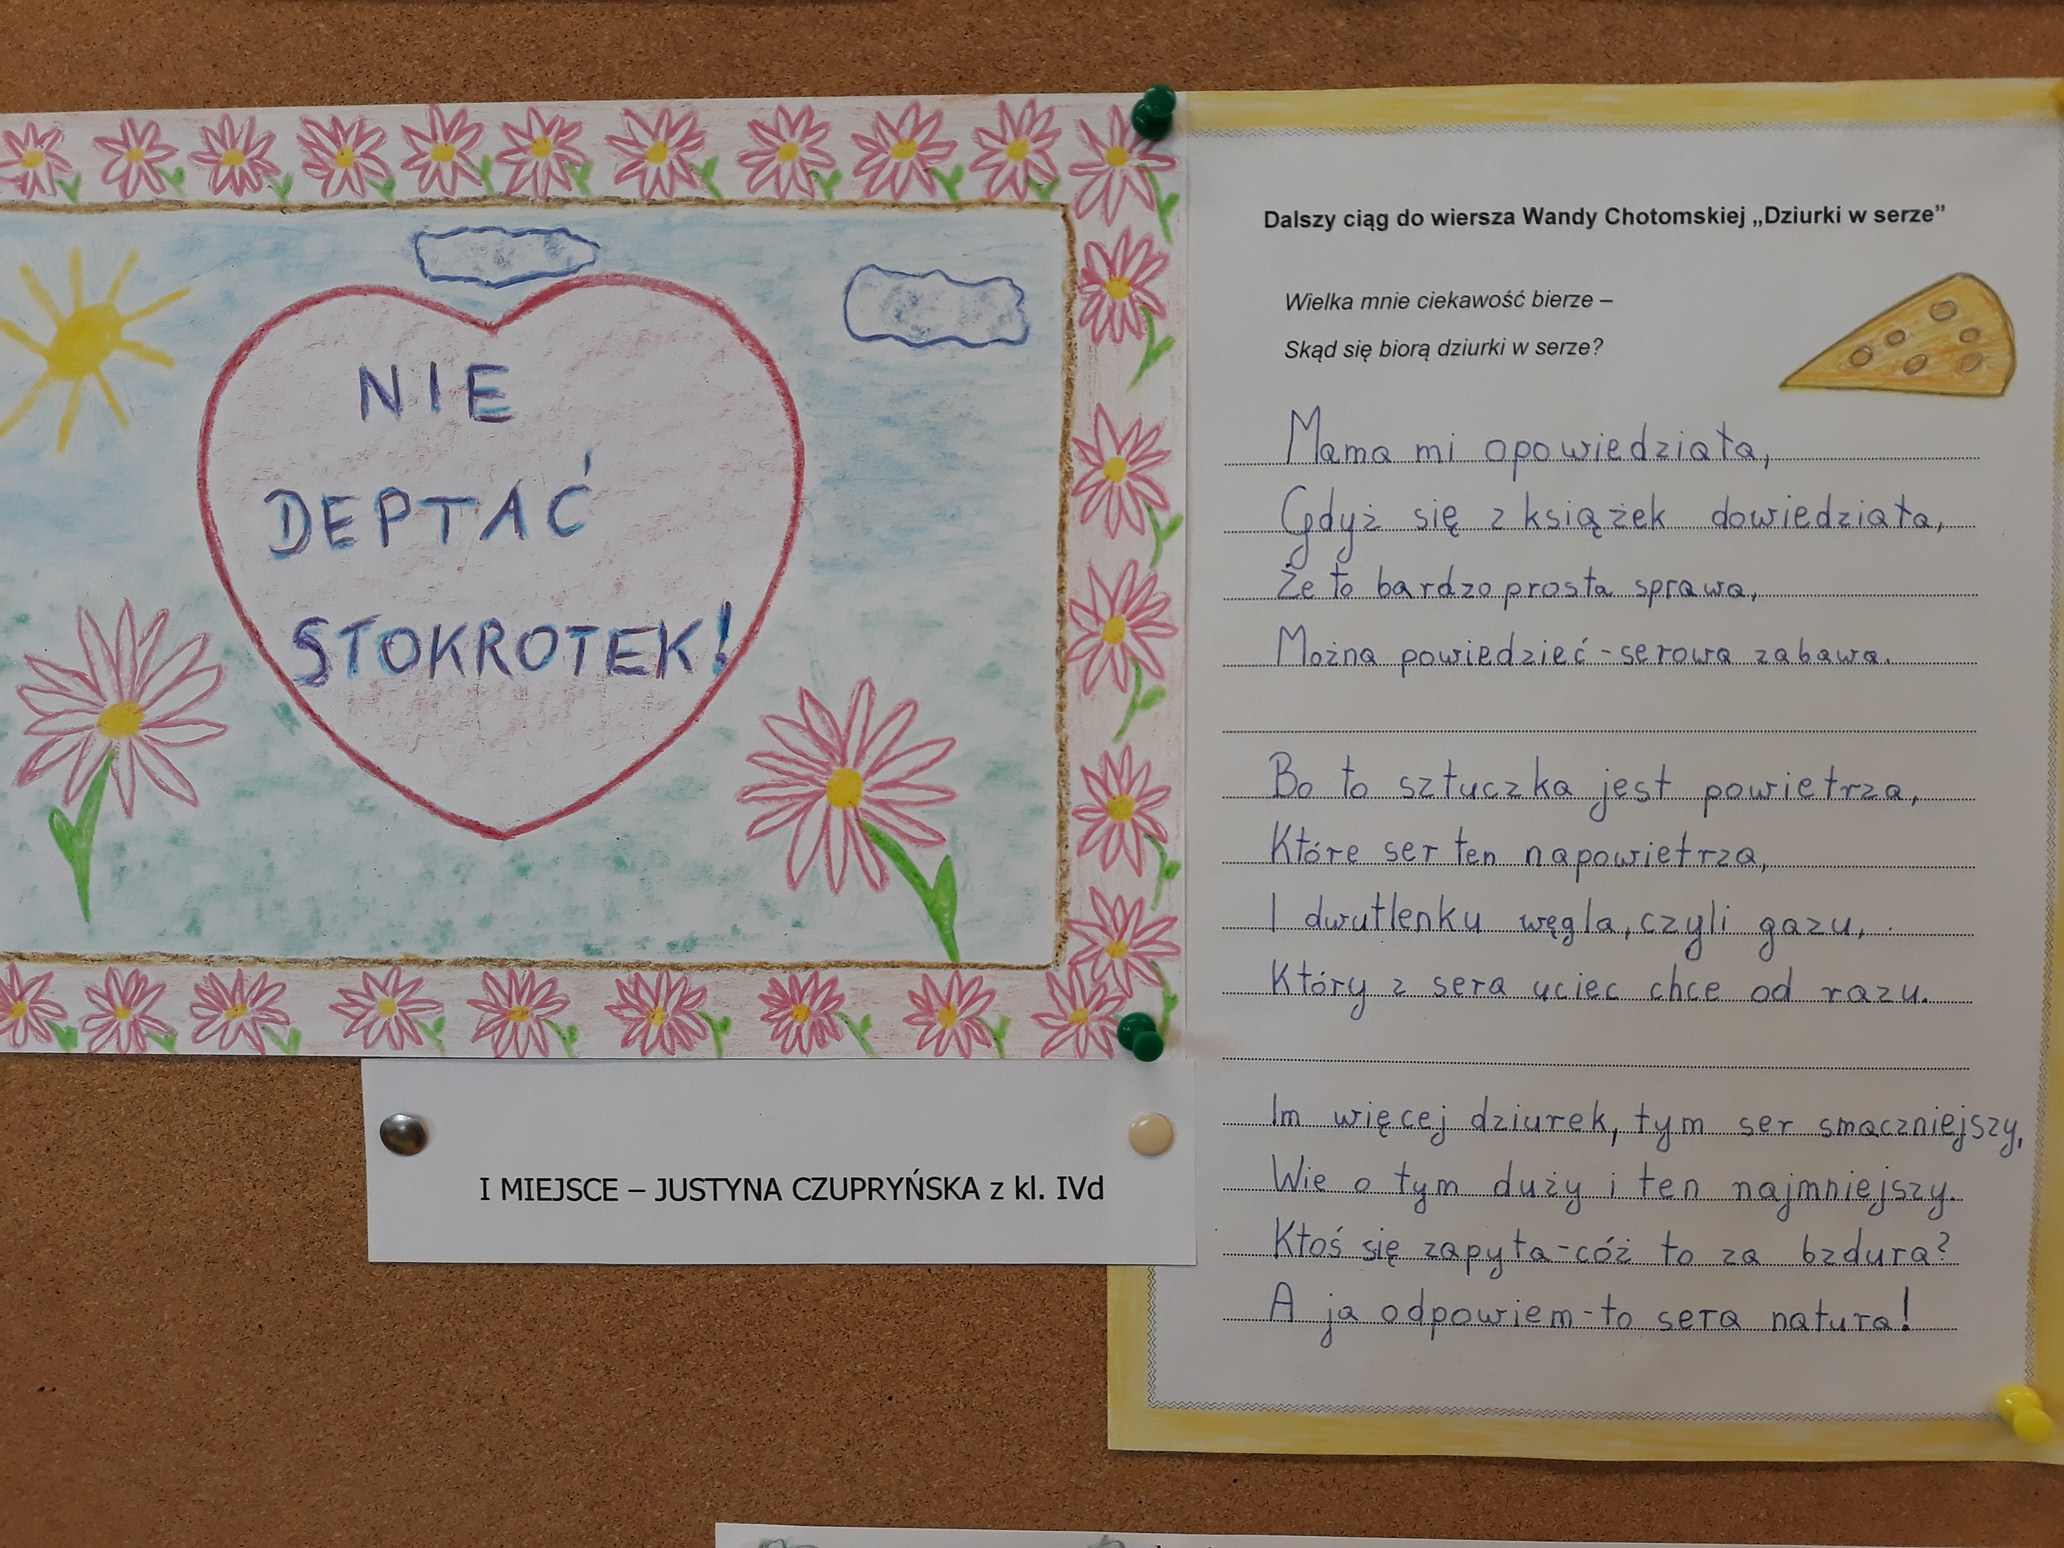 NIE
DEPTAĆ
STOKROTEK!
I MIEJSCE – JUSTYNA CZUPRYŃSKA z kl. IVd
Dalszy ciąg do wiersza Wandy Chotomskiej „Dziurki w serze”
Wielka mnie ciekawość bierze –
Skąd się biorą dziurki w serze?
Mama mi opowiedziała,
Gdyż się z książek dowiedziała,
Że to bardzo prosta sprawa,
Można powiedzieć - serowa zabawa.
Bo to sztuczka jest powietrza,
Które ser ten napowietrza,
I dwutlenku węgla, czyli gazu,
Który z sera uciec chce od razu.
Im więcej dziurek, tym ser smaczniejszy,
Wie o tym duży i ten najmniejszy.
Ktoś się zapyta - cóż to za bzdura?
A ja odpowiem - to sera natura!